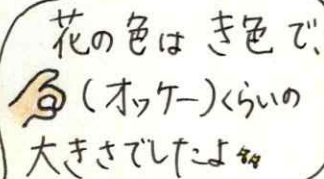 花の色は き色で、
(オッケー)くらいの
大きさでしたよ